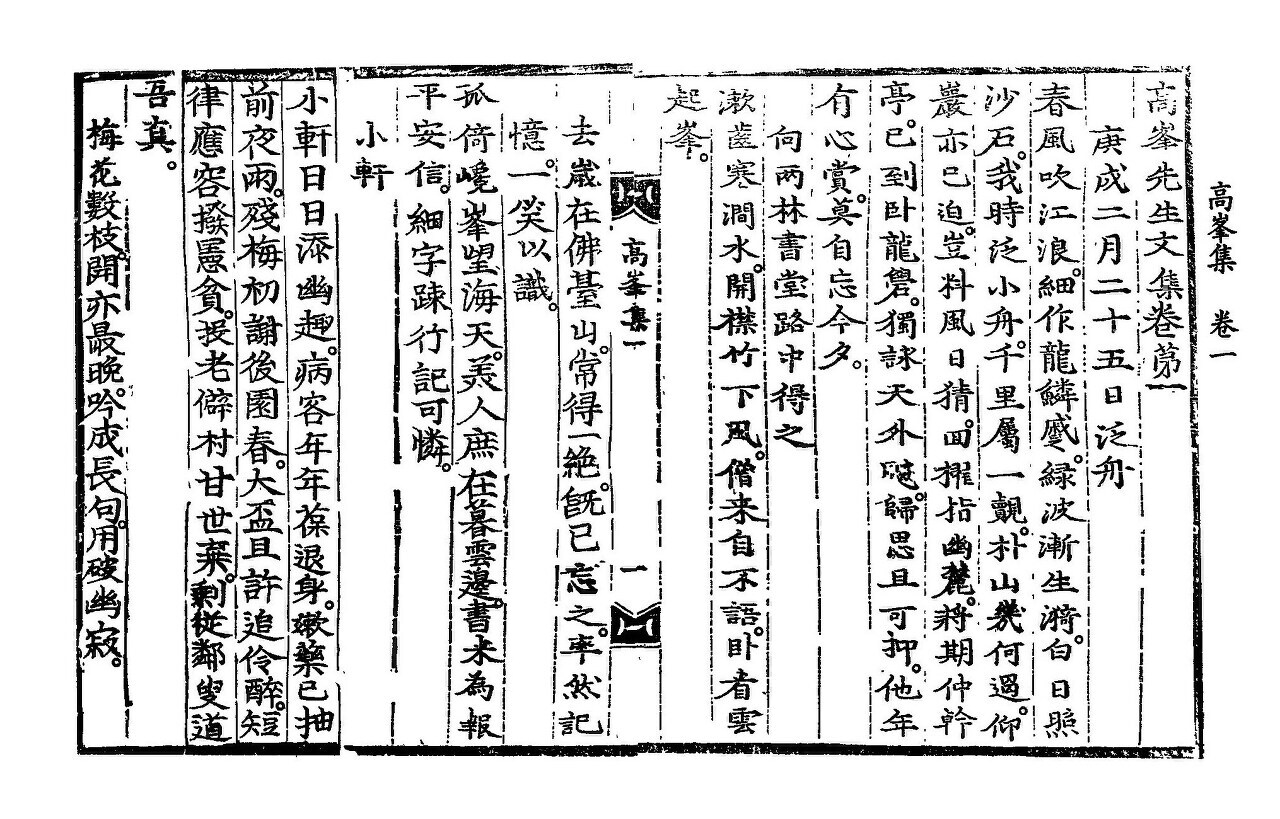 高峯集　卷一
高峯先生文集卷第一
庚戌二月二十五日泛舟
春風吹江浪。細作龍鱗蹙。綠波漸生漪。白日照
沙石。我時泛小舟。千里屬一覿。朴山幾何過。仰
巖亦已迫。豈料風日猜。回櫂指幽麓。將期仲幹
亭。已到卧龍礐。獨詠天外。歸思且可抑。他年
有心賞。莫自忘今夕。
向兩林書堂路中得之
漱齒寒澗水。開襟竹下風。僧来自不語。卧看雲
起峯。
高峯集一
一
去歲在佛臺山。常得一絶。旣已忘之。率然記
憶。一笑以識。
孤倚巉峯望海天。美人庶在暮雲邊。書来為報
平安信。細字踈行記可憐。
小軒
小軒日日添幽趣。病客年年葆退身。嫩藥已抽
前夜雨。殘梅初謝後園春。大盃且許追伶醉。短
律應容撥憲貧。投老僻村甘世棄。剩從鄰叟道
吾眞。
梅花數枝。開亦最晩。吟成長句。用破幽寂。